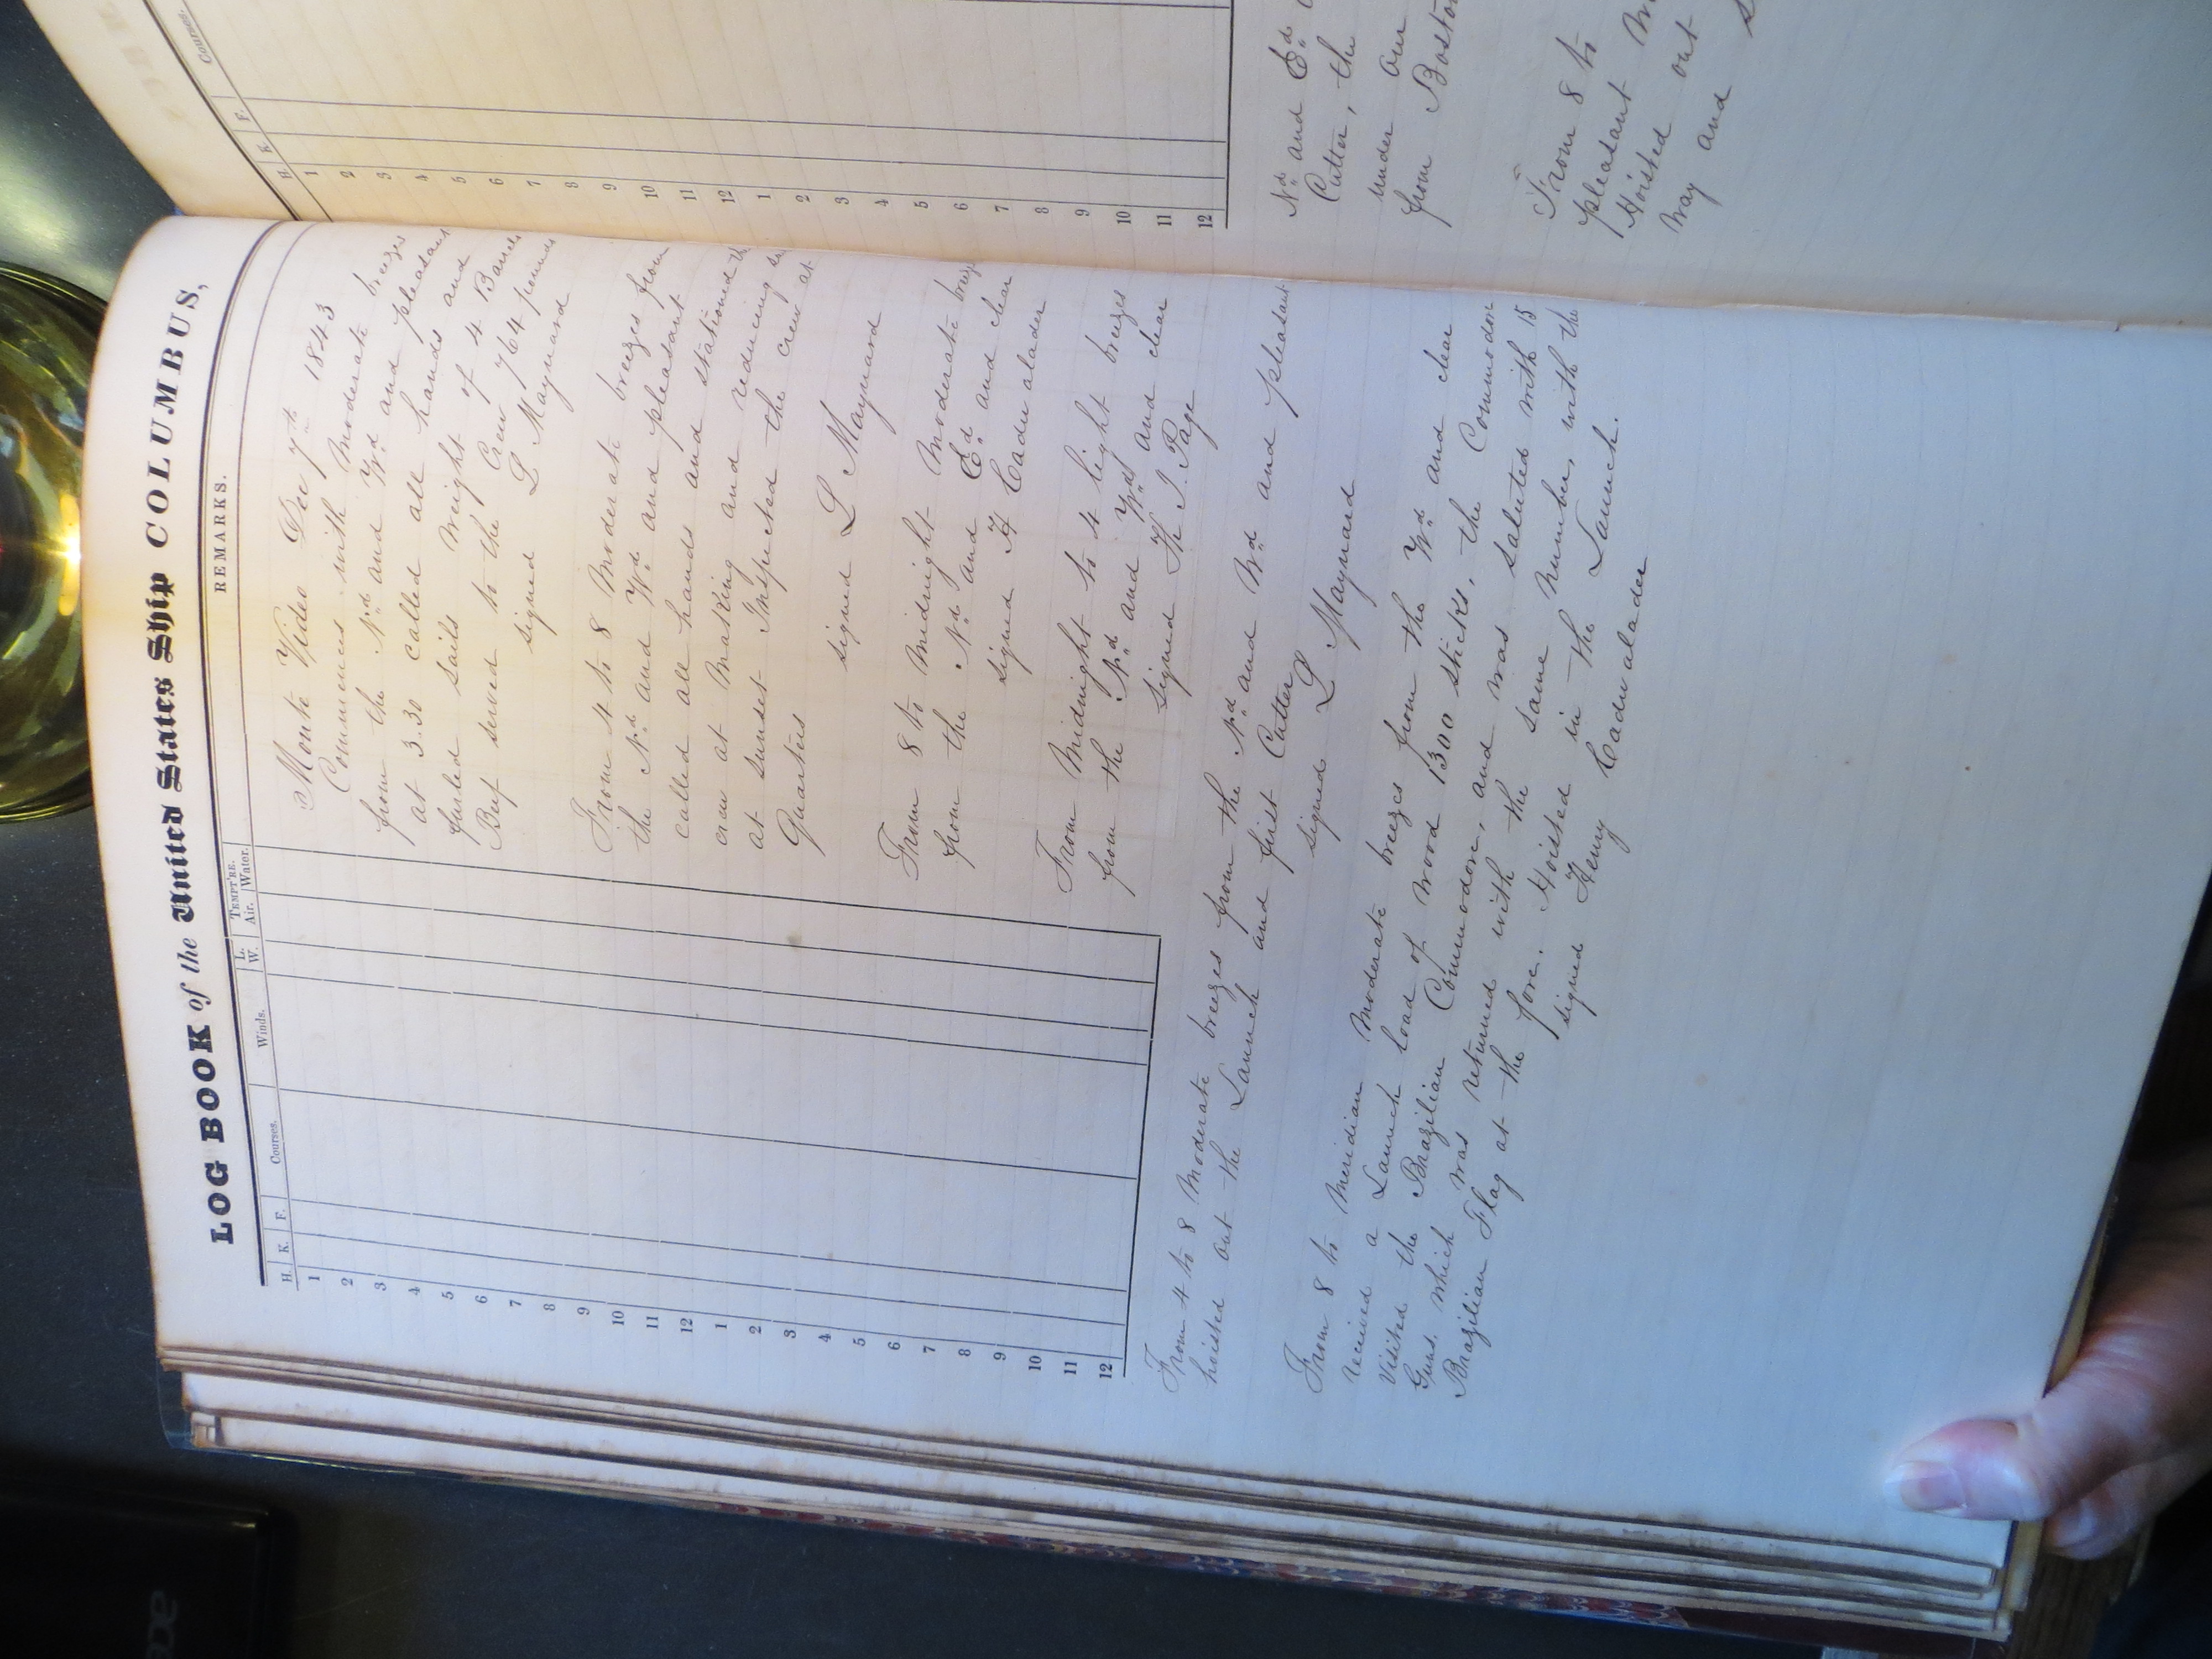 LOG BOOK of the United States Ship COLUMBUS,
H. K. F. Courses. Winds. L. W. TEMPT'RE. Air. Water. REMARKS.
1
2
3
4
5
6
7
8
9
10
11
12
1
2
3
4
5
6
7
8
9
10
11
12
Monte Video Dec 7th 1843
Commences with Moderate breezes
from the Nd and Wd and pleasant
at 3.30 called all hands and
furled sails Weight of 4 Barrels
Beef served to the Crew 764 pounds
signed L Maynard
From 4 to 8 Moderate breezes from
the Nd and Wd and pleasant
called all hands and stationed the
crew at making and reducing sail
at sunset Inspected the crew at
Quarters
signed L Maynard
From 8 to Midnight Moderate breezes
from the Nd and Ed and clear
signed H Cadwalader
From Midnight to 4 light breezes
from the Nd and Wd and clear
signed Th J. Page
From 4 to 8 Moderate breezes from the Nd and Wd and pleasant
hoisted out the Launch and first Cutter
signed L Maynard
From 8 to Meridian Moderate breezes from the Wd and clear
received a Launch load of wood 1300 sticks, the Commodore
Visited the Brazilian Commodore, and was saluted with 15
Guns. which was returned with the same Number, with the
Brazilian Flag at the fore. Hoisted in the Launch.
signed Henry Cadwalader
H. K. F. Courses.
1
2
3
4
5
6
7
8
9
10
11
12
1
2
3
4
5
6
7
8
9
10
11
12
Nd and Ed
Cutter, the
under our
from Boston
From 8 to
pleasant
Hoisted out
way and